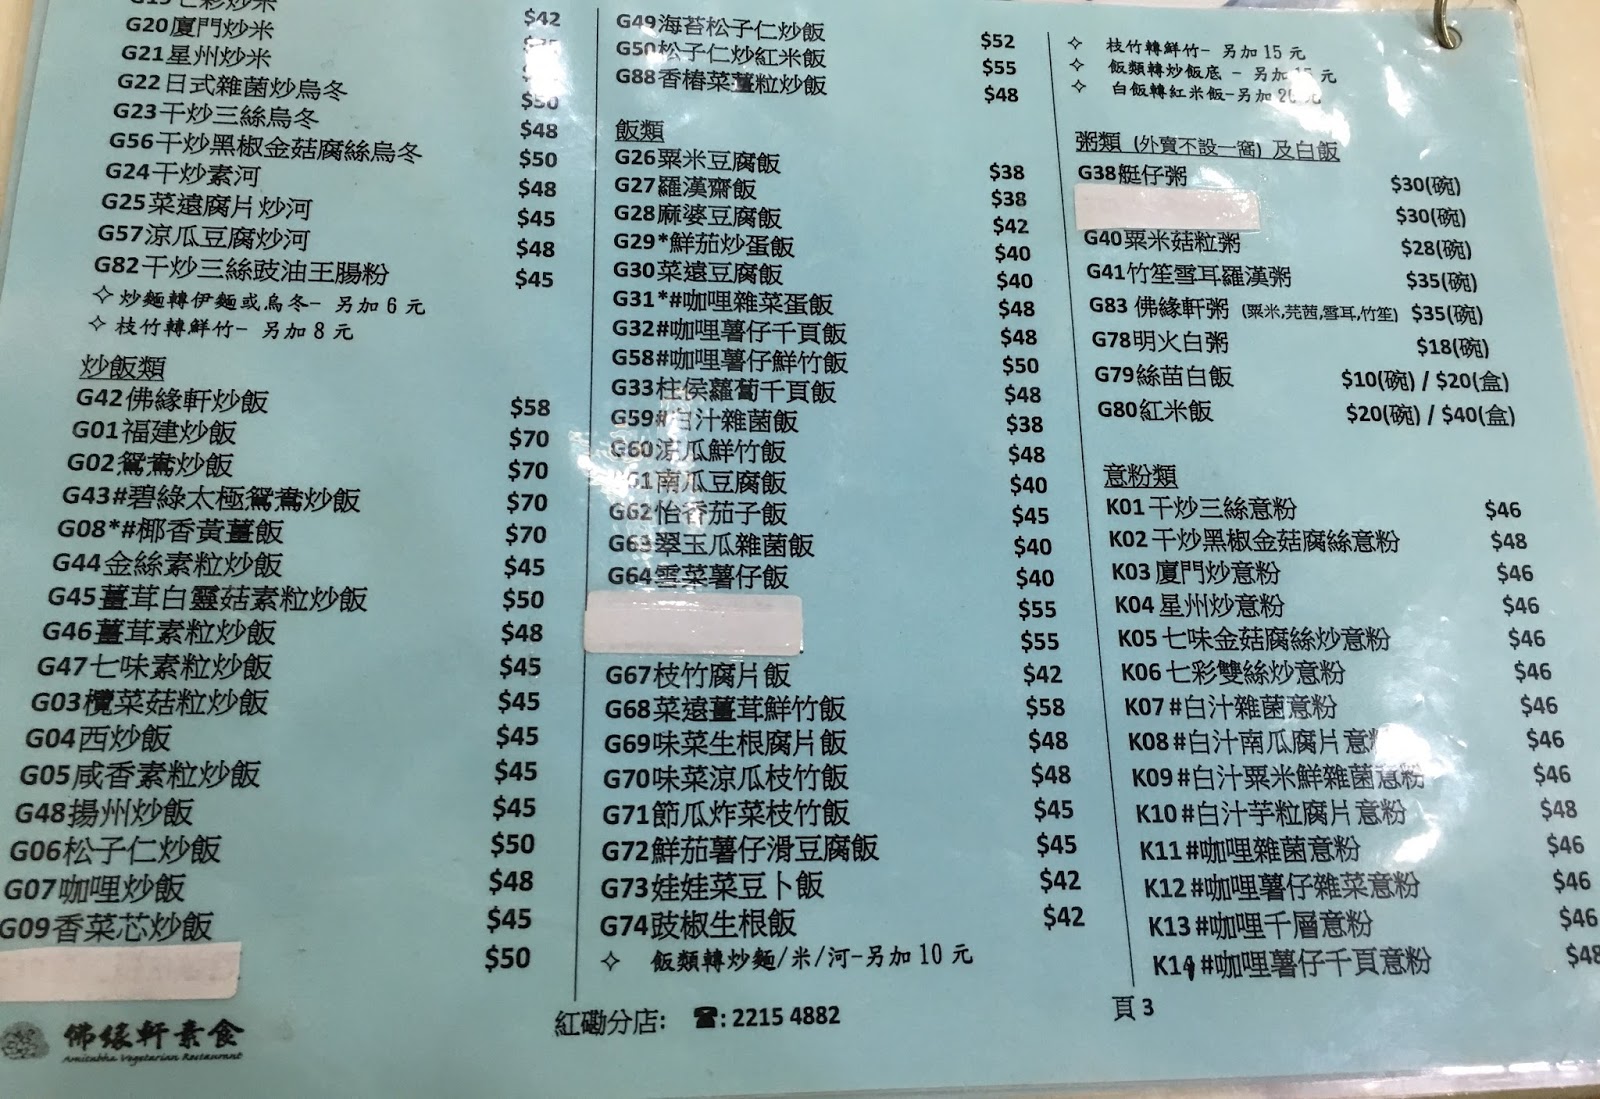 G19七彩炒米 $42
G20廈門炒米
G21星州炒米
G22日式雜菌炒烏冬 $50
G23干炒三絲烏冬 $48
G56干炒黑椒金菇腐絲烏冬 $50
G24干炒素河 $48
G25菜遠腐片炒河 $45
G57涼瓜豆腐炒河 $48
G82干炒三絲豉油王腸粉 $45
✧ 炒麵轉伊麵或烏冬- 另加 6 元
✧ 枝竹轉鮮竹- 另加 8 元
炒飯類
G42佛緣軒炒飯 $58
G01福建炒飯 $70
G02鴛鴦炒飯 $70
G43#碧綠太極鴛鴦炒飯 $70
G08*#椰香黃薑飯 $70
G44金絲素粒炒飯 $45
G45薑茸白靈菇素粒炒飯 $50
G46薑茸素粒炒飯 $48
G47七味素粒炒飯 $45
G03欖菜菇粒炒飯 $45
G04西炒飯 $45
G05咸香素粒炒飯 $45
G48揚州炒飯 $45
G06松子仁炒飯 $50
G07咖哩炒飯 $48
G09香菜芯炒飯 $45
$50
G49海苔松子仁炒飯 $52
G50松子仁炒紅米飯 $55
G88香椿菜薑粒炒飯 $48
飯類
G26粟米豆腐飯 $38
G27羅漢齋飯 $38
G28麻婆豆腐飯 $42
G29*鮮茄炒蛋飯 $40
G30菜遠豆腐飯 $40
G31*#咖哩雜菜蛋飯 $48
G32#咖哩薯仔千頁飯 $48
G58#咖哩薯仔鮮竹飯 $50
G33柱侯蘿蔔千頁飯 $48
G59#白汁雜菌飯 $38
G60涼瓜鮮竹飯 $48
G61南瓜豆腐飯 $40
G62怡香茄子飯 $45
G63翠玉瓜雜菌飯 $40
G64雪菜薯仔飯 $40
$55
$55
G67枝竹腐片飯 $42
G68菜遠薑茸鮮竹飯 $58
G69味菜生根腐片飯 $48
G70味菜涼瓜枝竹飯 $48
G71節瓜炸菜枝竹飯 $45
G72鮮茄薯仔滑豆腐飯 $45
G73娃娃菜豆卜飯 $42
G74豉椒生根飯 $42
✧ 飯類轉炒麵/米/河-另加 10 元
✧ 枝竹轉鮮竹- 另加 15 元
✧ 飯類轉炒飯底 - 另加 15 元
✧ 白飯轉紅米飯-另加 20 元
粥類 (外賣不設一窩) 及白飯
G38艇仔粥 $30(碗)
$30(碗)
G40粟米菇粒粥 $28(碗)
G41竹笙雪耳羅漢粥 $35(碗)
G83 佛緣軒粥 (粟米,芫茜,雪耳,竹笙) $35(碗)
G78明火白粥 $18(碗)
G79絲苗白飯 $10(碗) / $20(盒)
G80紅米飯 $20(碗) / $40(盒)
意粉類
K01干炒三絲意粉 $46
K02干炒黑椒金菇腐絲意粉 $48
K03廈門炒意粉 $46
K04星州炒意粉 $46
K05七味金菇腐絲炒意粉 $46
K06七彩雙絲炒意粉 $46
K07#白汁雜菌意粉 $46
K08#白汁南瓜腐片意粉 $46
K09#白汁粟米鮮雜菌意粉 $46
K10#白汁芋粒腐片意粉 $48
K11#咖哩雜菌意粉 $46
K12#咖哩薯仔雜菜意粉 $46
K13#咖哩千層意粉 $46
K14#咖哩薯仔千頁意粉 $48
佛緣軒素食
Amitabha Vegetarian Restaurant
紅磡分店: ☎: 2215 4882
頁 3